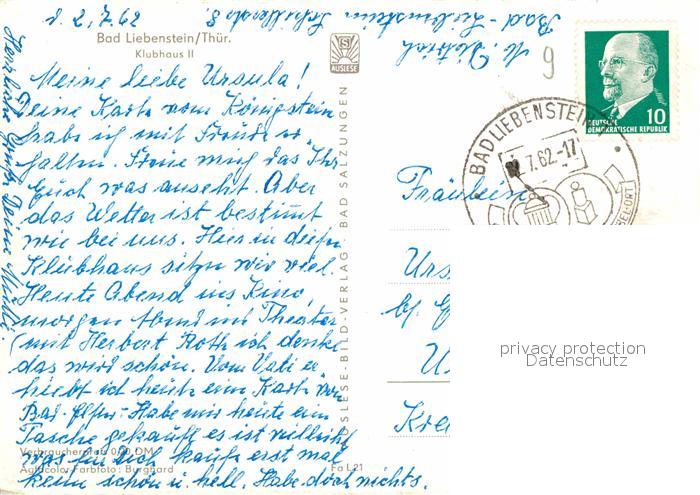 d. 2.7.62
Bad Liebenstein/Thür.
Klubhaus II
AUSLESE
Meine liebe Ursula!
Deine Karte vom Königstein
habe ich mit Freude er-
halten. Freue mich das Ihr
Euch was anseht. Aber
das Wetter ist bestimmt
wie bei uns. Hier in diesem
Klubhaus sitzen wir viel.
Heute Abend ins Kino,
morgen Abend ins Theater
(mit Herbert Roth ich denke
das wird schön. Vom Vati er-
hielt ich heute eine Karte von
Bad- Elster- Habe mir heute ein
Tasche gekauft es ist vielleicht
was für Dich kaufe erst mal
keine schön u. hell. Habe doch nichts.
Herzliche Grüße Deine Mutti.
Verbraucherpreis 0,20 DM
Agfacolor Farbfoto: Burghard
Fa L21
AUSLESE-BILD-VERLAG BAD SALZUNGEN
M. Dietrich
Bad-Liebenstein
9
10
DEUTSCHE
DEMOKRATISCHE REPUBLIK
BAD LIEBENSTEIN
2.7.62.-17
Fräulein
Urs
bf. G
U
Kre
privacy protection
Datenschutz